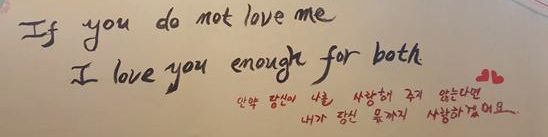 If you do not love me
I love you enough for both
만약 당신이 나를 사랑해 주지 않는다면
내가 당신 몫까지 사랑하겠어요.